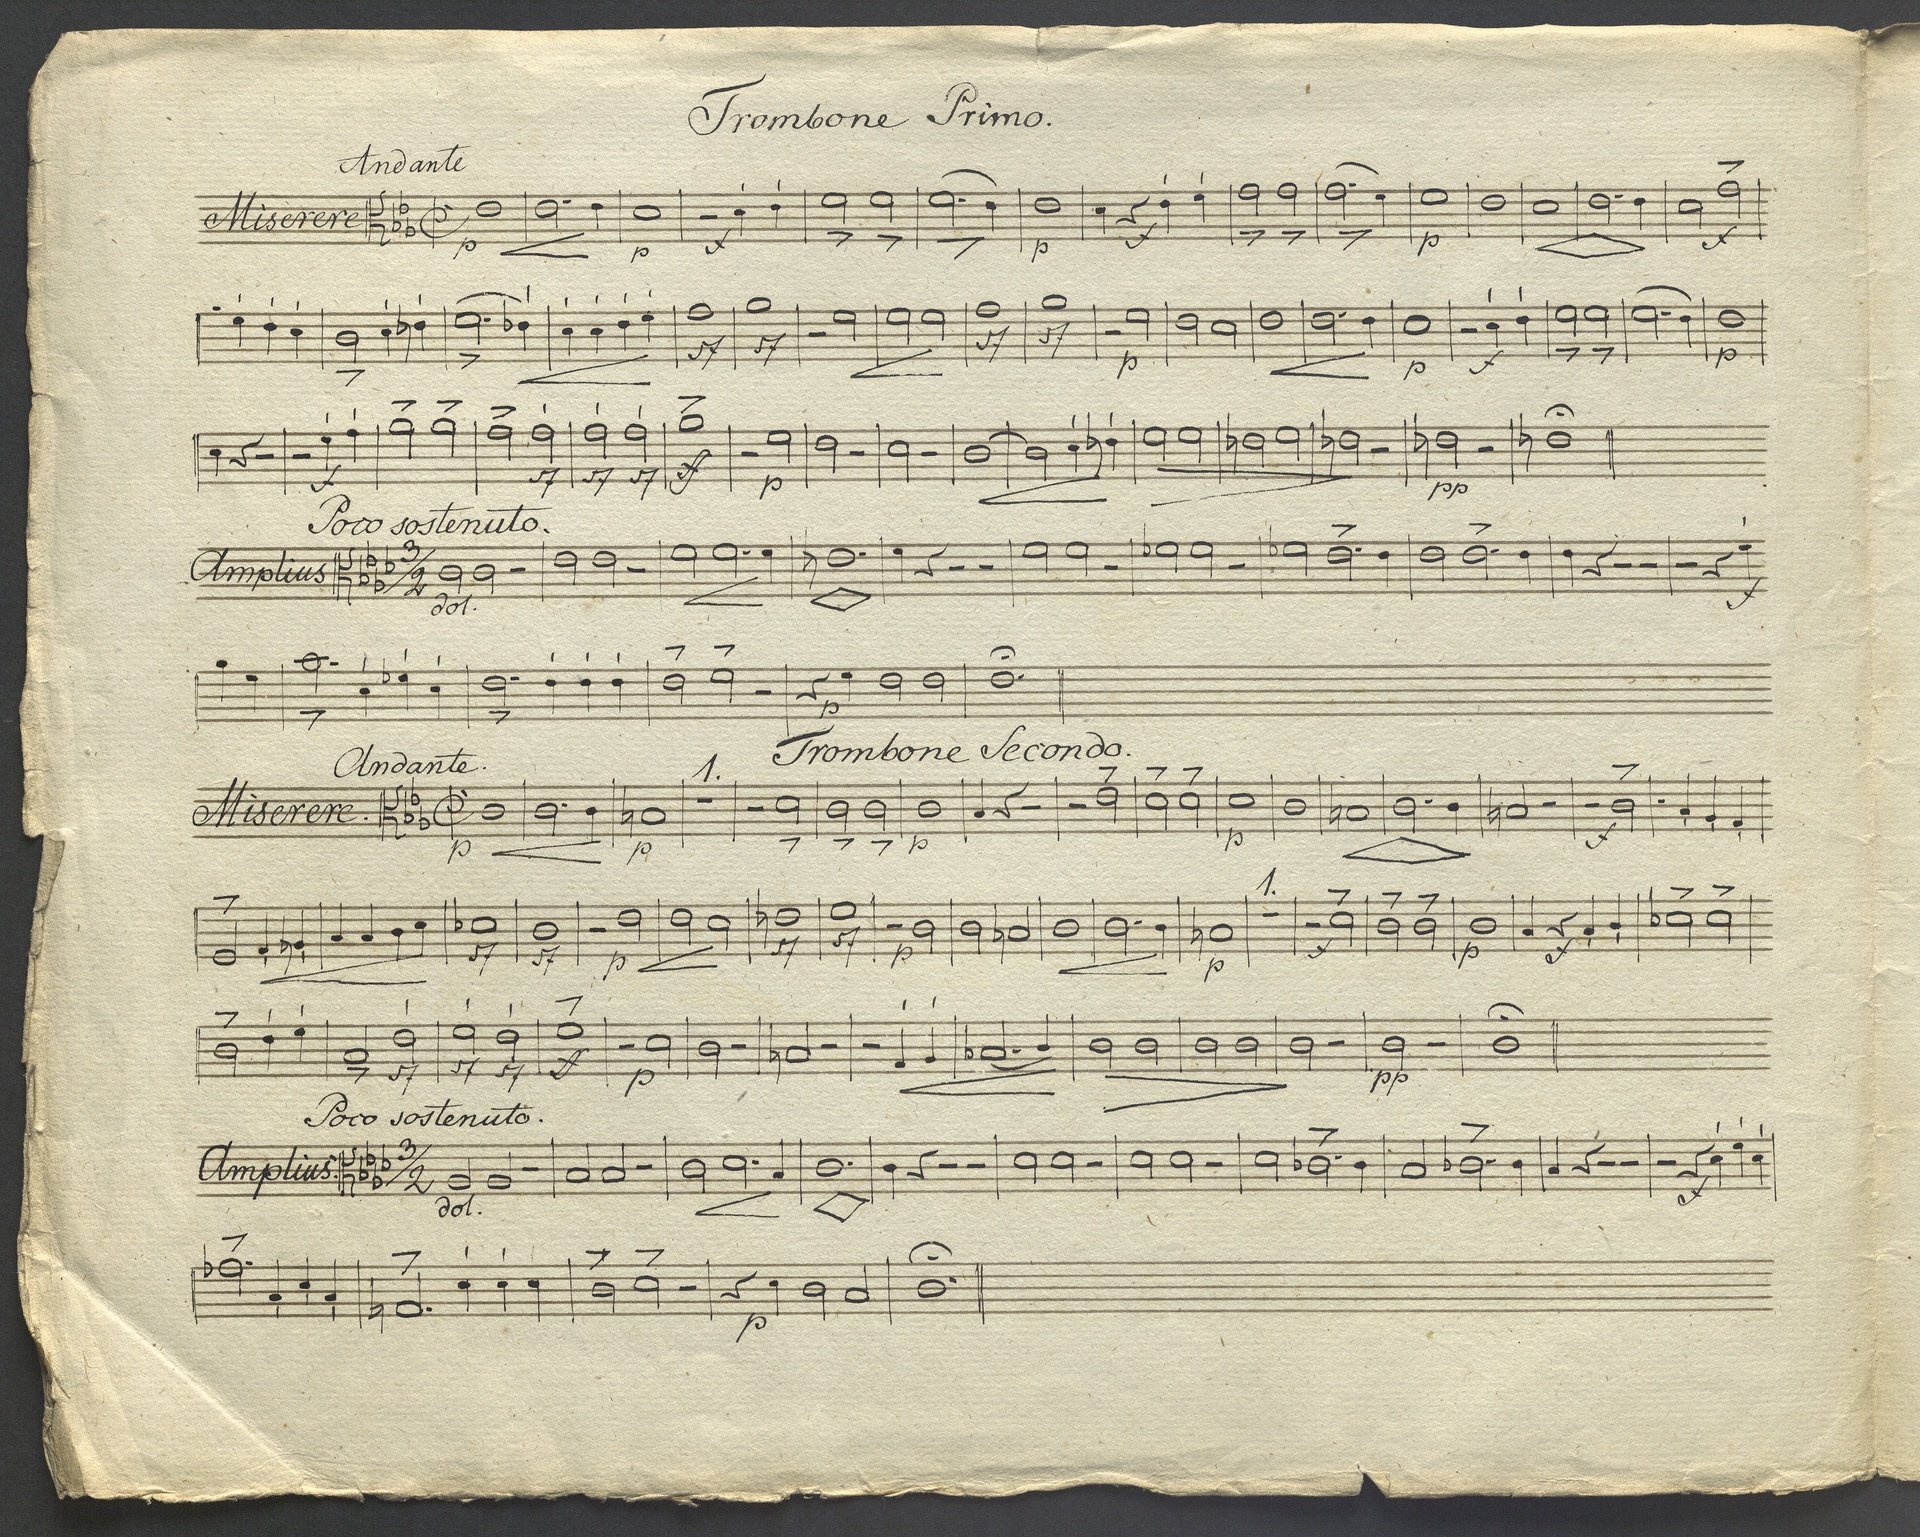 Trombone Primo.
Andante
Miserere
p p f p f p f
sf sf sf sf p p f p
f sf sf sf ff p pp
Poco sostenuto.
Amplius 3/2
dol. f
p
Trombone Secondo.
Andante. 1.
Miserere.
p p p p f
1.
sf sf p sf sf p p f p f
sf sf sf ff p pp
Poco sostenuto.
Amplius. 3/2
dol. f
p